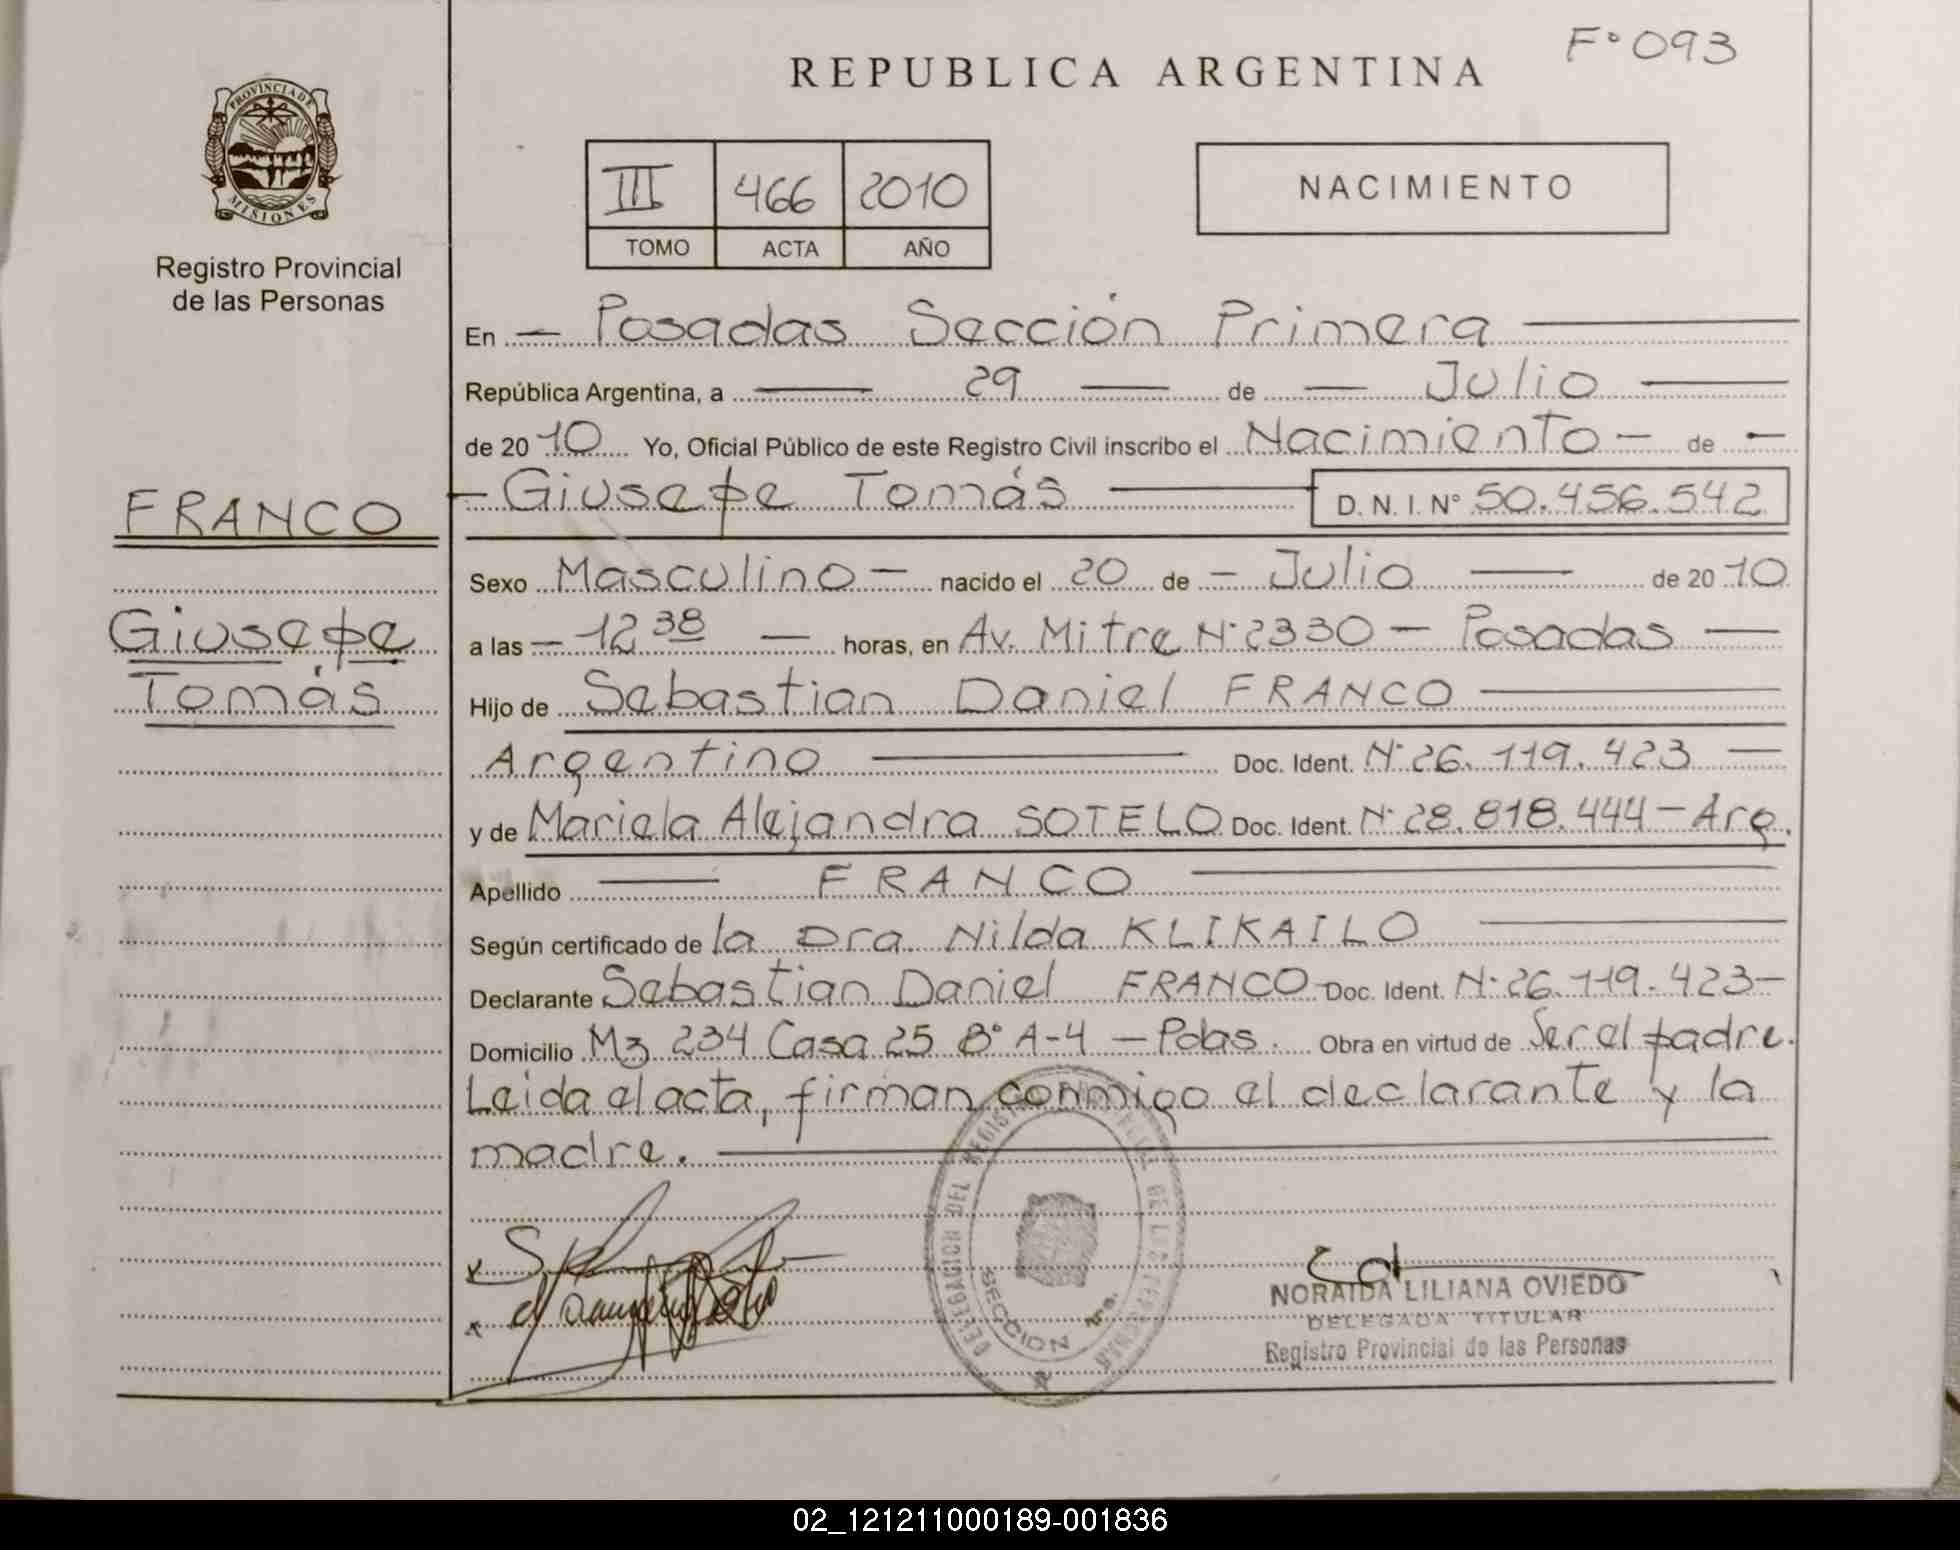 F° 093
REPUBLICA ARGENTINA
PROVINCIA DE
MISIONES
Registro Provincial
de las Personas
III 466 2010
TOMO ACTA AÑO
NACIMIENTO
En Posadas Sección Primera
República Argentina, a 29 de Julio
de 2010 Yo, Oficial Público de este Registro Civil inscribo el Nacimiento de
Giusepe Tomás D.N.I. N° 50.456.542
FRANCO
Giusepe
Tomás
Sexo Masculino nacido el 20 de Julio de 2010
a las 12 38 horas, en Av. Mitre N° 2330 - Posadas
Hijo de Sebastian Daniel FRANCO
Argentino Doc. Ident. N° 26.119.423
y de Mariela Alejandra SOTELO Doc. Ident. N° 28.818.444 - Arg.
Apellido FRANCO
Según certificado de la Dra. Nilda KLIKAILO
Declarante Sebastian Daniel FRANCO Doc. Ident. N° 26.119.423
Domicilio Mz 234 Casa 25 B° A-4 - Pdas. Obra en virtud de Ser el padre.
Leida el acta, firman conmigo el declarante y la
madre.
DELEGACION DEL REGISTRO DE LAS PERSONAS
SECCION 1ra.
NORAIDA LILIANA OVIEDO
DELEGADA TITULAR
Registro Provincial de las Personas
02_121211000189-001836